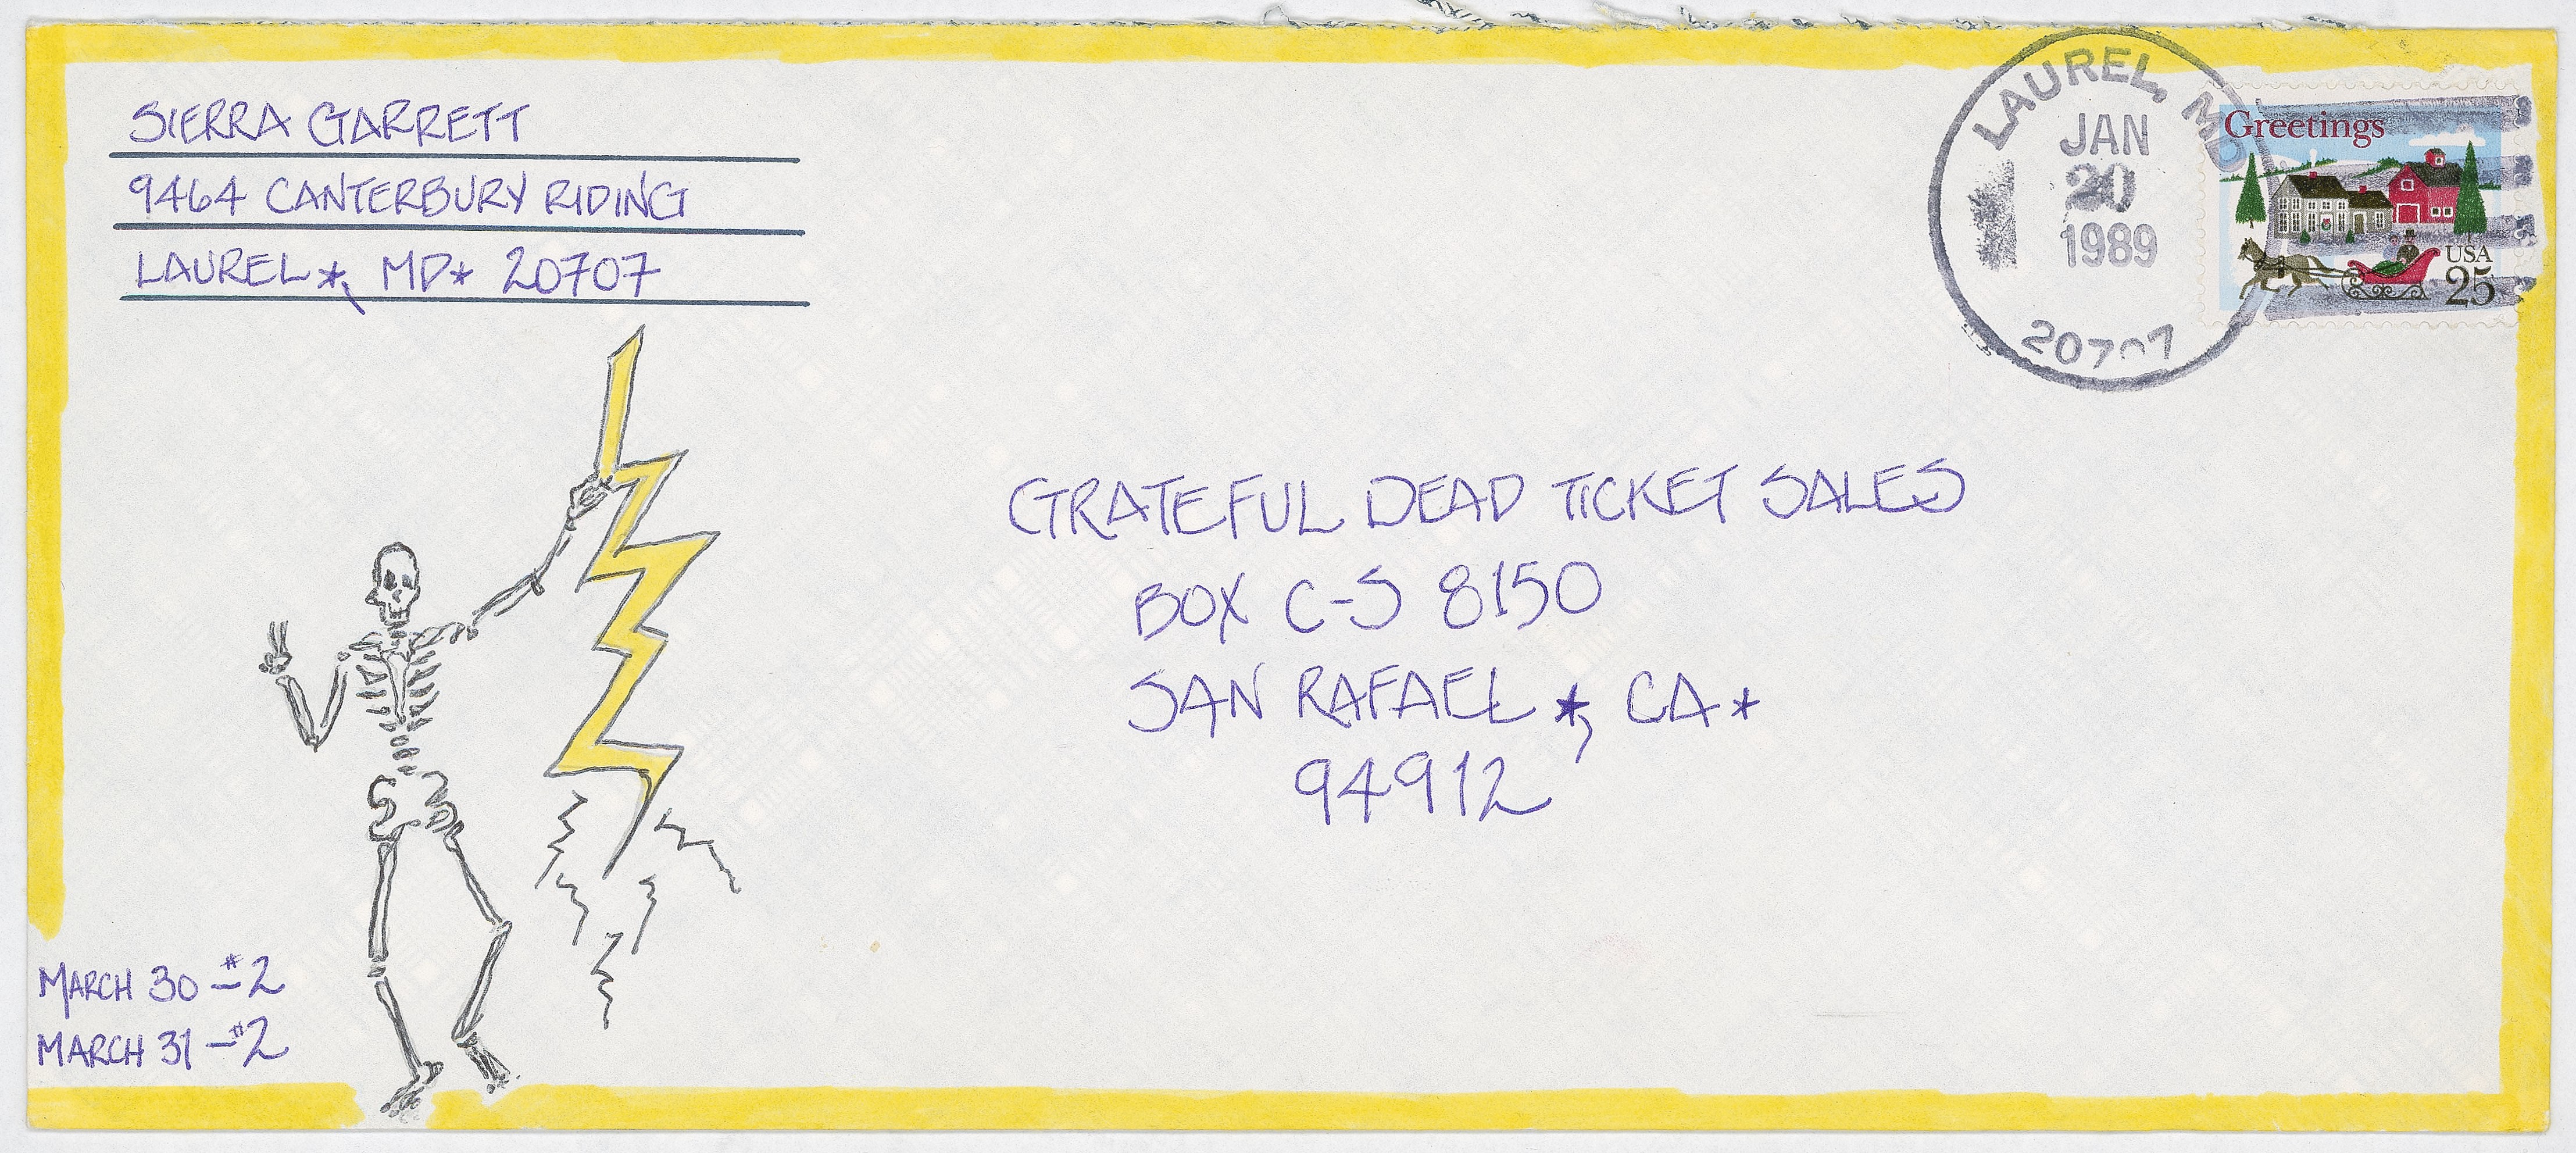 SIERRA GARRETT
9464 CANTERBURY RIDING
LAUREL*, MD* 20707
LAUREL, MD
JAN
20
1989
20707
Greetings
USA
25
GRATEFUL DEAD TICKET SALES
BOX C-S 8150
SAN RAFAEL *, CA*
94912
MARCH 30 - #2
MARCH 31 - #2